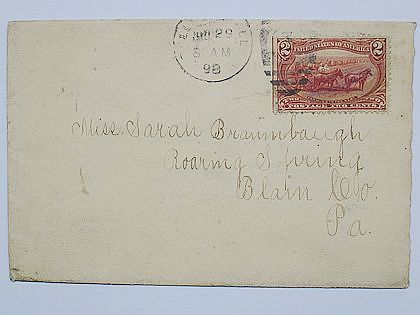 29
5 AM
98
UNITED STATES OF AMERICA
2 2
POSTAGE TWO CENTS
Miss Sarah Braumbaugh
Roaring Spring
Blair Co.
Pa.